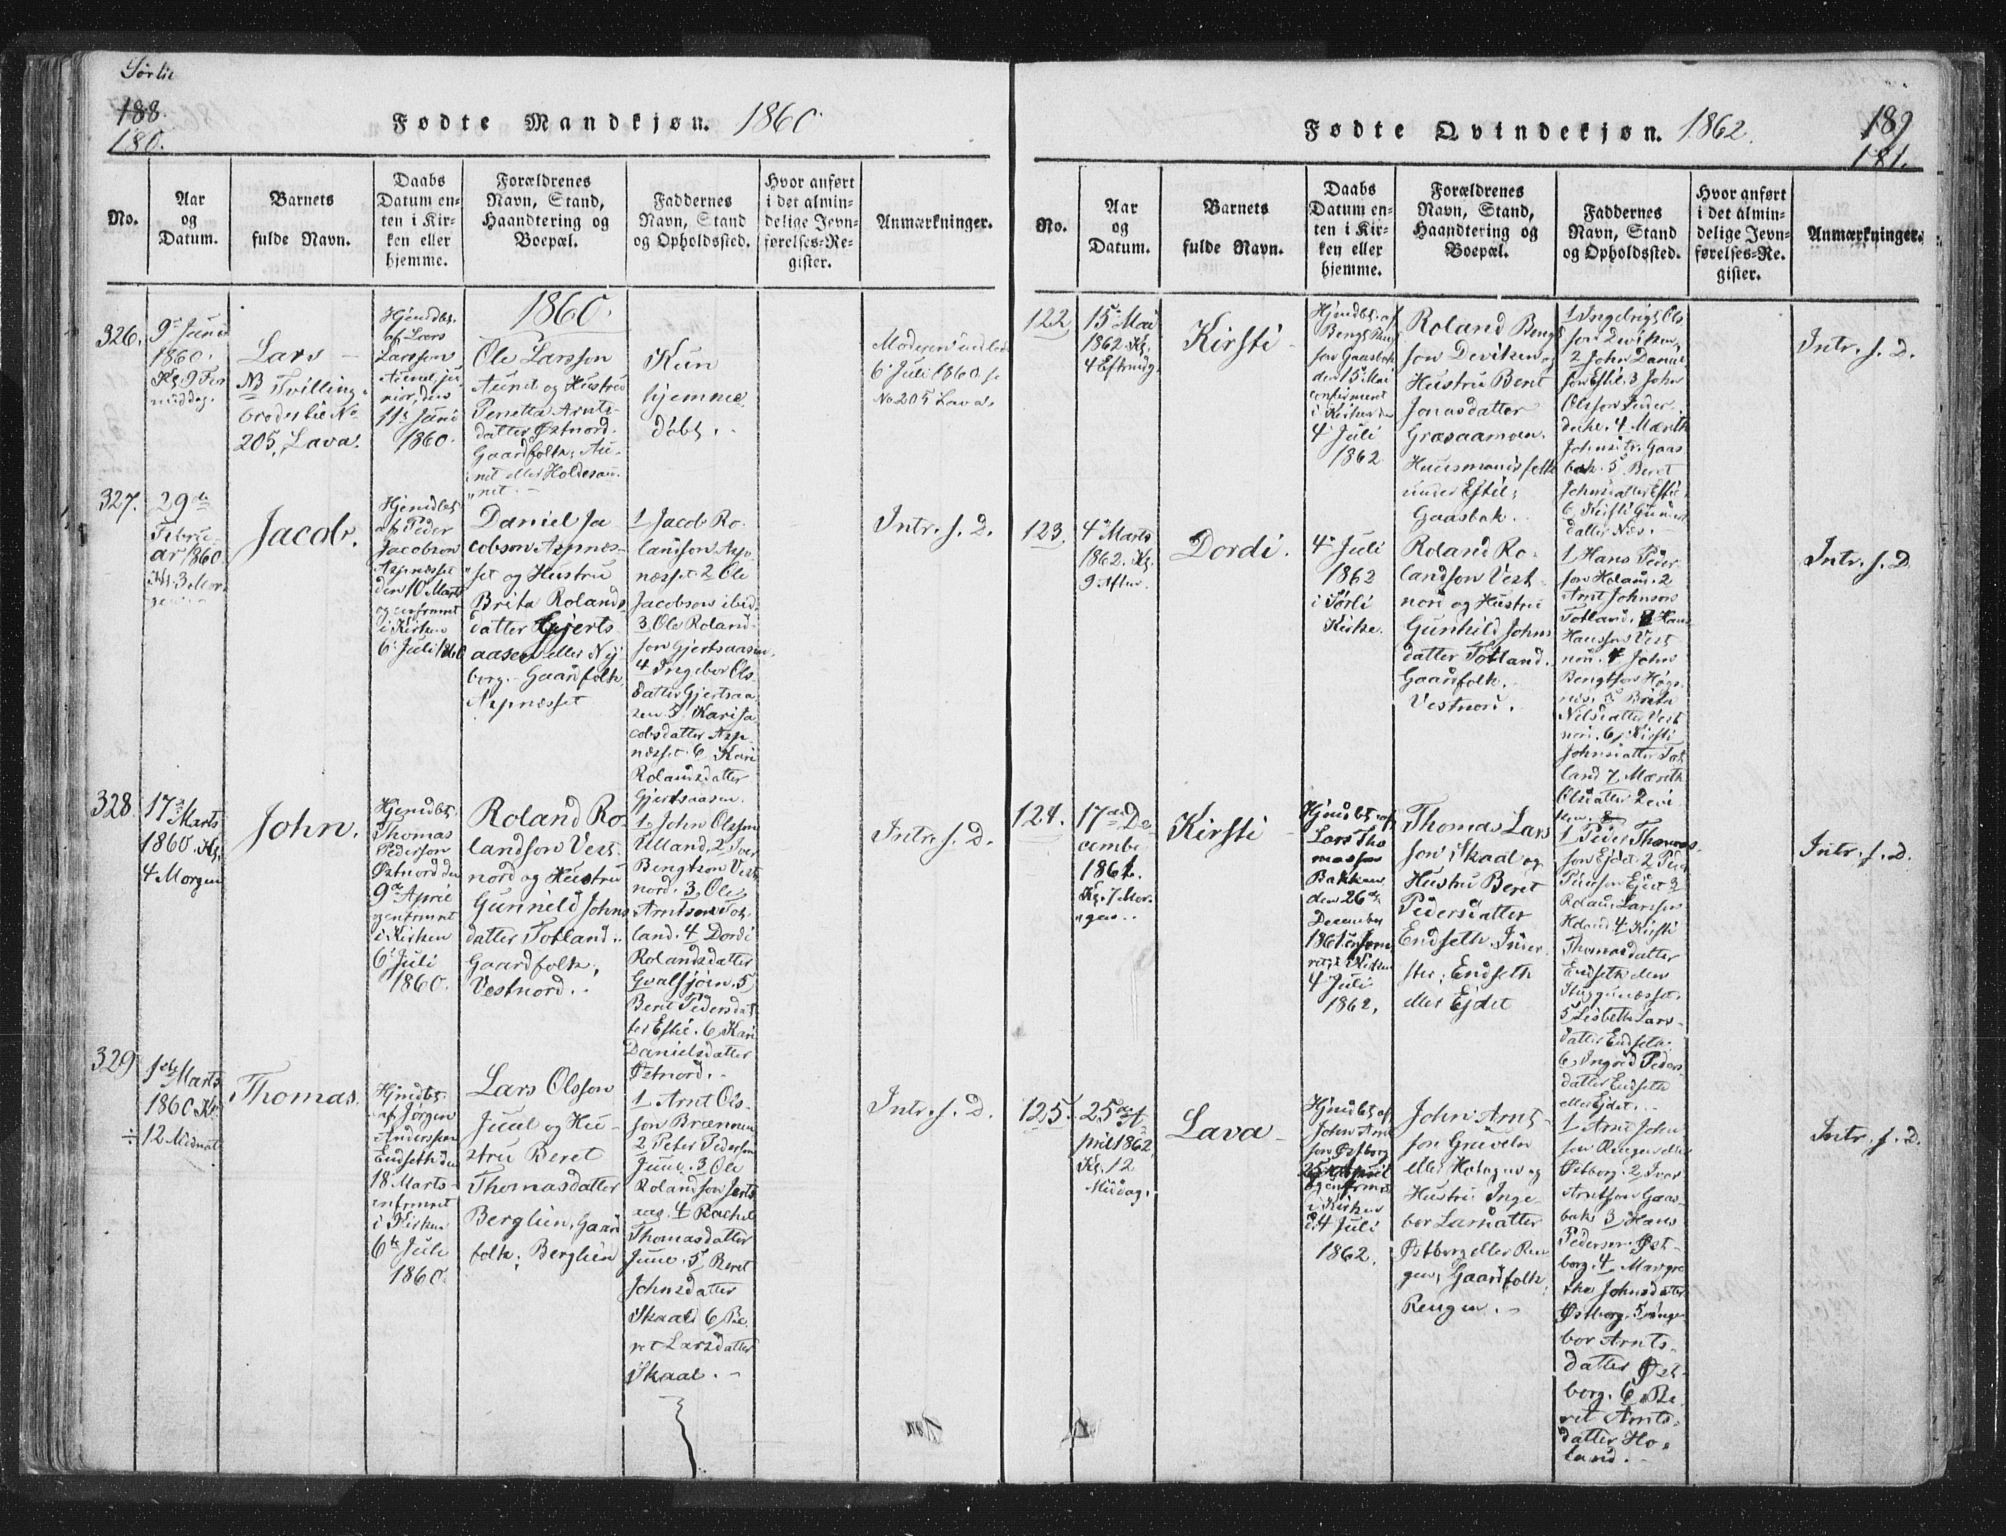 Sørlie
188.
180.
Fødte Mandkjøn. 1860
No.
Aar
og
Datum.
Barnets
fulde Navn.
Daabs
Datum en-
ten i Kir-
ken eller
hjemme.
Forældrenes
Navn, Stand,
Haandtering og
Boepæl.
Faddernes
Navn, Stand
og Opholdssted.
Hvor anført
i det almin-
delige Jevn-
førelses-Re-
gister.
Anmærkninger.
326.
9de Juni
1860.
Kl. 9 For
middag.
Lars –
NB Tvilling-
broder til No
205, Lava.
Hjemdbt.
af Lars
Larsson
Aunet, ju
nior, den
11te Juni
1860.
1860.
Ole Larsson
Aunet og Hustru
Arnts-
datter Østnord.
Gaardfolk, Au-
net eller Holdesau-
net. –
Kun
hjemme
døbt. –
Moderen
6 Juli 1860 se
No 205 Lava.
327.
29de
Febru-
ar 1860
Kl. 3 Mor-
gen. –
Jacob.
Hjemdbt.
af Peder
Jacobson
Aspnæsset
den 10 Marts
og confirmeret
i Kirken
6te Juli 1860
Daniel Ja-
cobson Aspnæs-
set og Hustru
Brita Rolands-
datter Gjerts-
aasen eller Ny
borg. – Gaardfolk
Aspnæsset
1 Jacob Ro-
landson Asp-
næsset 2 Ole
Jacobson ibid
3 Ole Roland-
son Gjertsaasen,
4 Ingebor Ols
datter Gjertsaa
sen 5 Kari Ja
cobsdatter Asp-
næsset. 6 Kari
Rolandsdatter
Gjertsaasen.
Intr. s. D.
328.
17de Marts
1860 Kl.
4 Morgen
John.
Hjemdbt.
Thomas
Pederson
Østnord den
9de April
og confirmeret
i Kirken
6te Juli
1860.
Roland Ro-
landson Vest-
nord og Hustru
Gunnild Johns
datter Totland.
Gaardfolk,
Vestnord. –
1 John Olsson
Ulland. 2 Iver
Bengtson Vest
nord. 3 Ole
Arntson Tot-
land. 4 Dordi
Rolandsdatter
Gvalsjøen. 5
Beret Pedersdat
ter Estil. 6 Kari
Danielsdatter
Østnord. –
Intr. s. D.
329
1ste Marts
1860 Kl.
÷ 12 Midnat
Thomas.
Hjemdbt.
af Jørgen
Andersson
Endseth den
18 Marts
confirmeret
i Kirken
6te Juli
1860.
Lars Olsson
Juul og Hu-
stru Beret
Thomasdatter
Berglien, Gaard
folk, Berglien
1 Arnt Ols-
son Brænnen
2 Peter Pederson
Juul. 3 Ole
Rolandson Jerts
aas. 4 Rachel
Thomasdatter
Juul. 5 Beret
Johnsdatter
Skaal 6 Be-
ret Larsdatter
Skaal. –
Intr. s. D.
189
181.
Fødte Qvindekjøn. 1862.
No.
Aar
og
Datum.
Barnets
fulde Navn.
Daabs
Datum en-
ten i Kir-
ken eller
hjemme.
Forældrenes
Navn, Stand,
Haandtering og
Boepæl.
Faddernes
Navn, Stand
og Opholdssted.
Hvor anført
i det almin-
delige Jevn-
førelses-Re-
gister.
Anmærkninger.
122
15de Mai
1862. Kl.
4 Eftmidg.
Kirsti –
Hjemdbt. af
Bengt
son Gaasbak
den 15de Mai
confirmeret
i Kirken den
4de Juli
1862
Roland Bengt
son Deviken og
Hustru Beret
Jonasdatter
Graesaamoen.
Huusmandsfolk
under Estil,
Gaasbak.
1 Ols
son Deviken,
2 John Daniel
son Estil. 3 John
Olsson
4 Mareth
Johnsdtr. Gaas
bak. 5 Beret
Johnsdatter Estil.
6 Kirsti
datter Næs. –
Intr. s. D.
123.
4de Marts
1862. Kl.
9 Aften
Dordi.
4de Juli
1862
i Sørli
Kirke.
Roland Ro-
landson Vest-
nord og Hustru
Gunhild Johns
datter Totland.
Gaardfolk.
Vestnord.
1 Hans Peder
son Holand. 2
Arnt Johnson
Totland. 3 Hans
Hansson Vest
nord. 4 John
Bengtson Høgs
næs. 5 Brita
Nilsdatter Vest
nord. 6 Kirsti
Johnsdatter Tot
land 7 Mareth
Olsdatter Devi
ken.
Intr. s. D.
124.
17de De-
cember
1861.
Kl. 7 Mor-
gen. –
Kirsti –
Hjemdbt. af
Lars Tho
masson
Bakken
den 26de
December
1861 confirme
ret i Kirken
4 Juli
1862.
Thomas Lars
son Skaal og
Hustru Beret
Pedersdatter
Endseth. Inder
ster, Endseth
eller Ejdet
1 Peder Thomas-
son Ejdet 2 Peder
Pederson Ejdet 3
Roland Larsson
Holand 4 Kirsti
Thomasdatter
Endseth
5 Lisbeth Lars-
datter Endseth.
6 Ingrid Peders-
datter Endseth
eller Ejdet. –
Intr. s. D.
125.
25de A-
pril 1862
Kl. 12
Middag.
Lava –
Hjemdbt. af
John Arnt
son Østborg
25 April
og confirmeret
i Kirken
d. 4 Juli
1862.
John Arnt-
son Gruveln
eller Holagen og
Hustru Inge-
bor Larsdatter
Østborg eller Ren-
gen, Gaardfolk,
Rengen. –
1 Arnt John
son Rengen eller
Østborg. 2 Ivar
Arntson Gaas-
bak 3 Hans
Pederson Øst-
borg. 4 Margre
tha Johnsdatter
Østborg. 5 Inge
bor Arnts-
datter Øst-
borg. 6 Be-
ret Arnts-
datter Ho-
land. –
Intr. s. D.